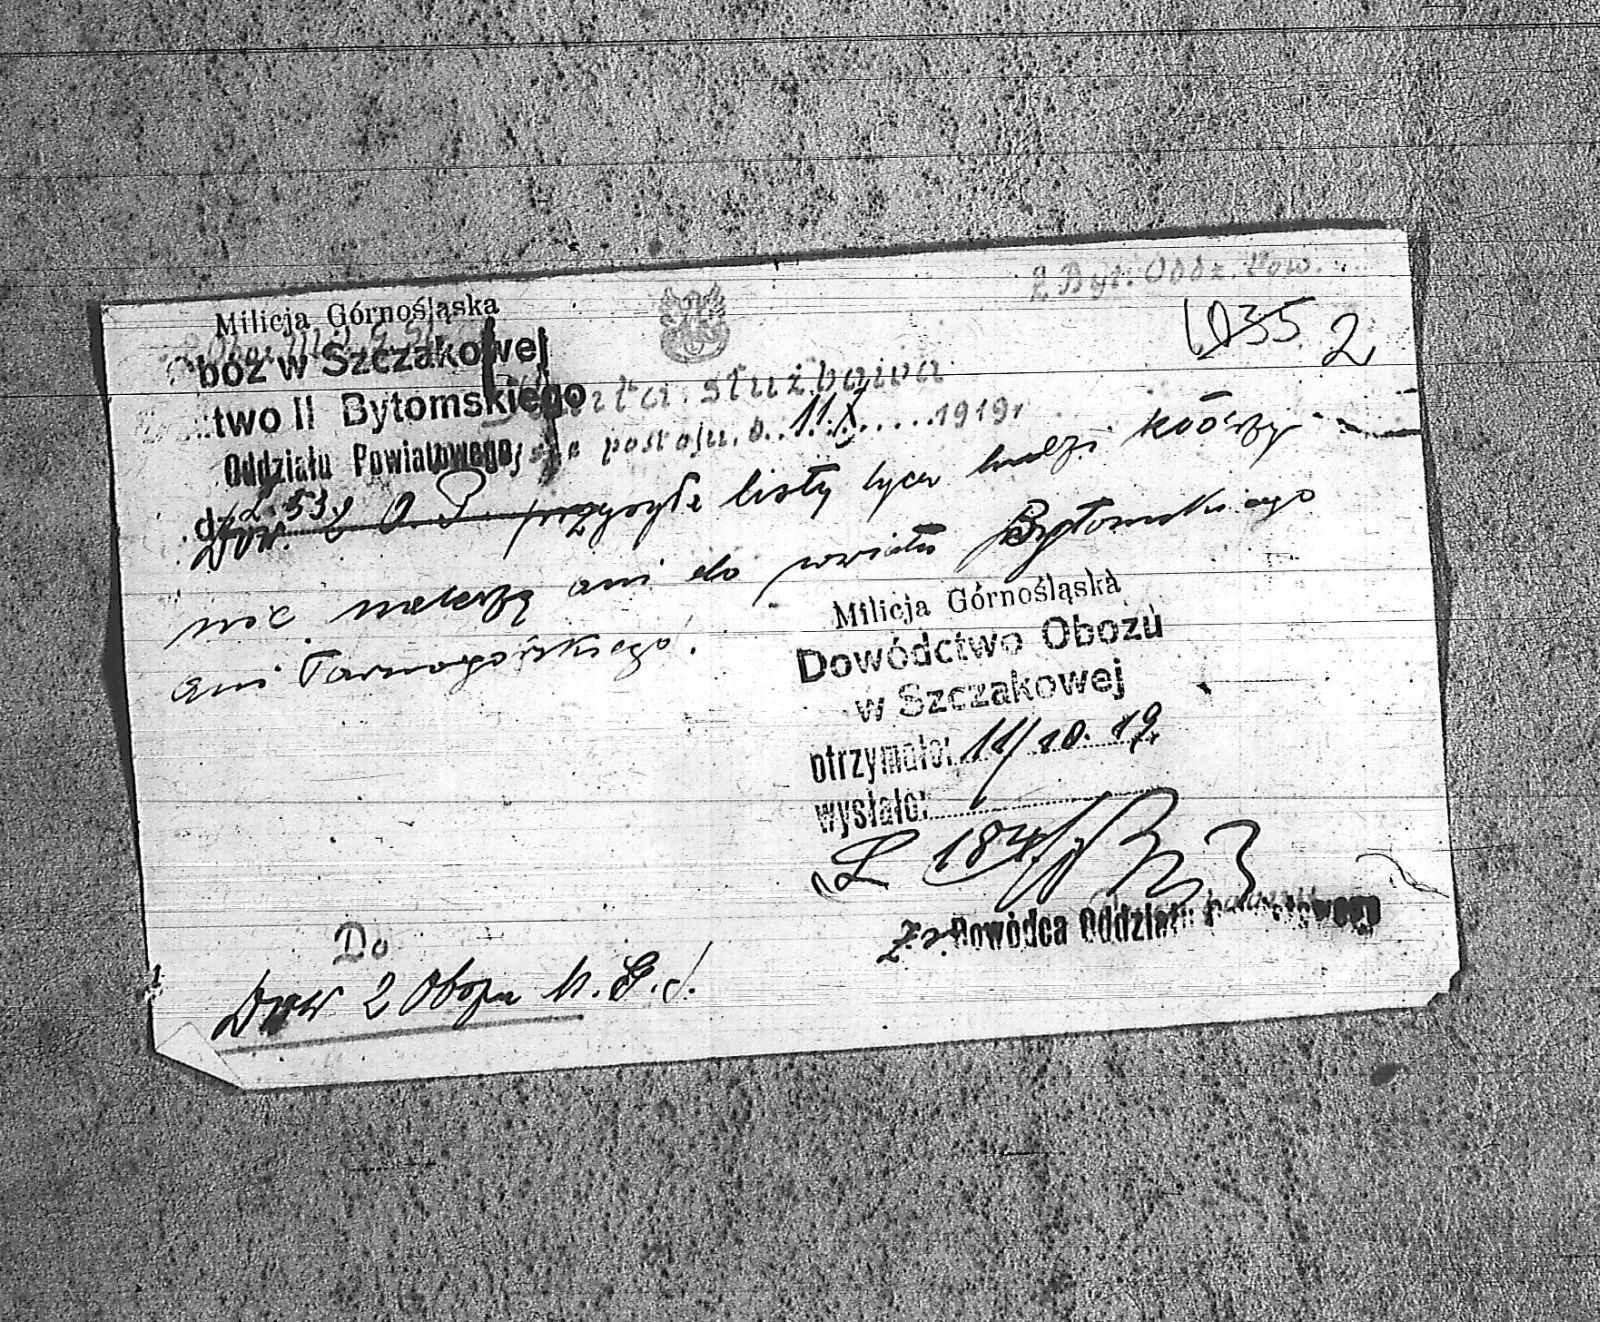 2 Byt. Oddz. Pow.
Milicja Górnośląska
1035 2
boz w Szczakowej
two II Bytomskiego
służbowa
Oddziału Powiatowego
postoju d. 11.X 1919r
L. 53
Dow. 2 O. P. przysyła listy tych ludzi którzy
nie należą ani do powiatu Bytomskiego
ani Tarnogórskiego.
Milicja Górnośląska
Dowództwo Obozu
w Szczakowej
otrzymało: 11/10. 19.
wysłało:
L 184/
Za Dowódca Oddziału
Do
Dow 2 Obozu M. G. Ś.